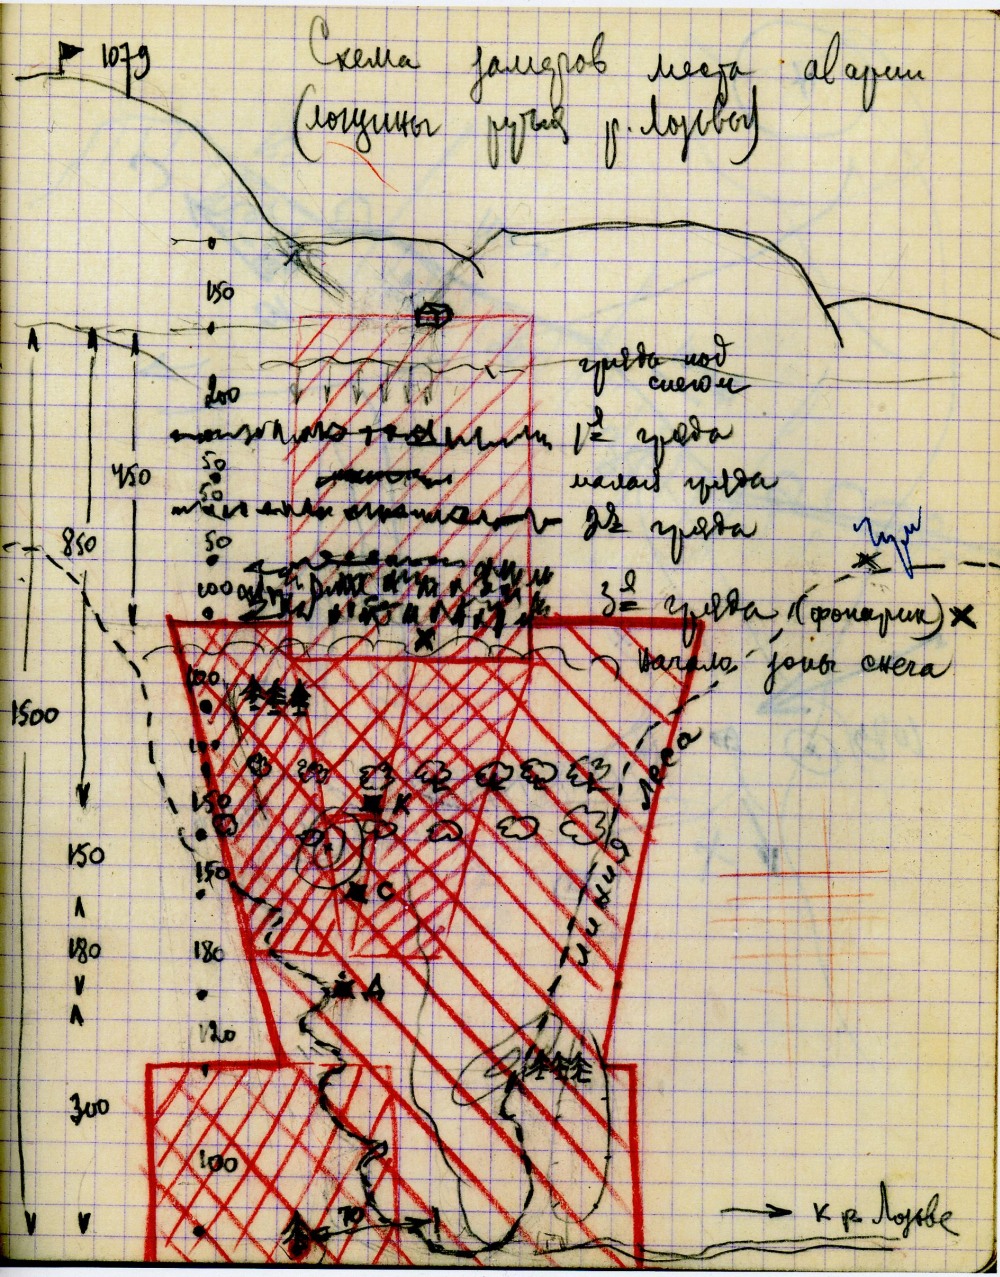 1079
Схема замеров места аварии
(лощины ручья р. Лозьвы)
150
гряда под
снегом
200
1я гряда
50
450
малая гряда
50
2я гряда
850
50
100
3я гряда (фонарик)
начало зоны снега
100
1500
100
150
К
150
150
С
линия леса
180
180
Д
120
300
100
70
к р. Лозьве